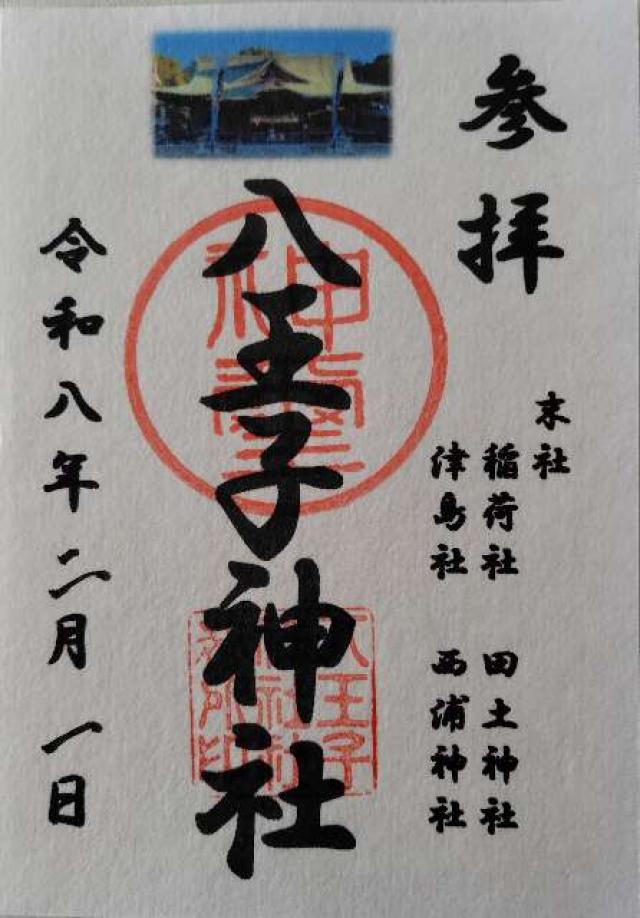 参拝
末社
稲荷社 田土神社
津島社 西浦神社
八王子神社
令和八年二月一日